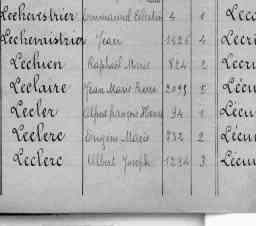 Lechevestrier Emmanuel Célestin 4 1 Leco
Lecheministrier Jean 1426 4 Lecri
Lechien Raphaël Marie 824 2 Lecru
Leclaire Jean Marie Pierre 2093 5 Lécu
Lecler Alfred François 94 1 Lécu
Leclerc Eugène Marie 732 2 Lécu
Leclerc Albert Joseph 1294 3 Lécu